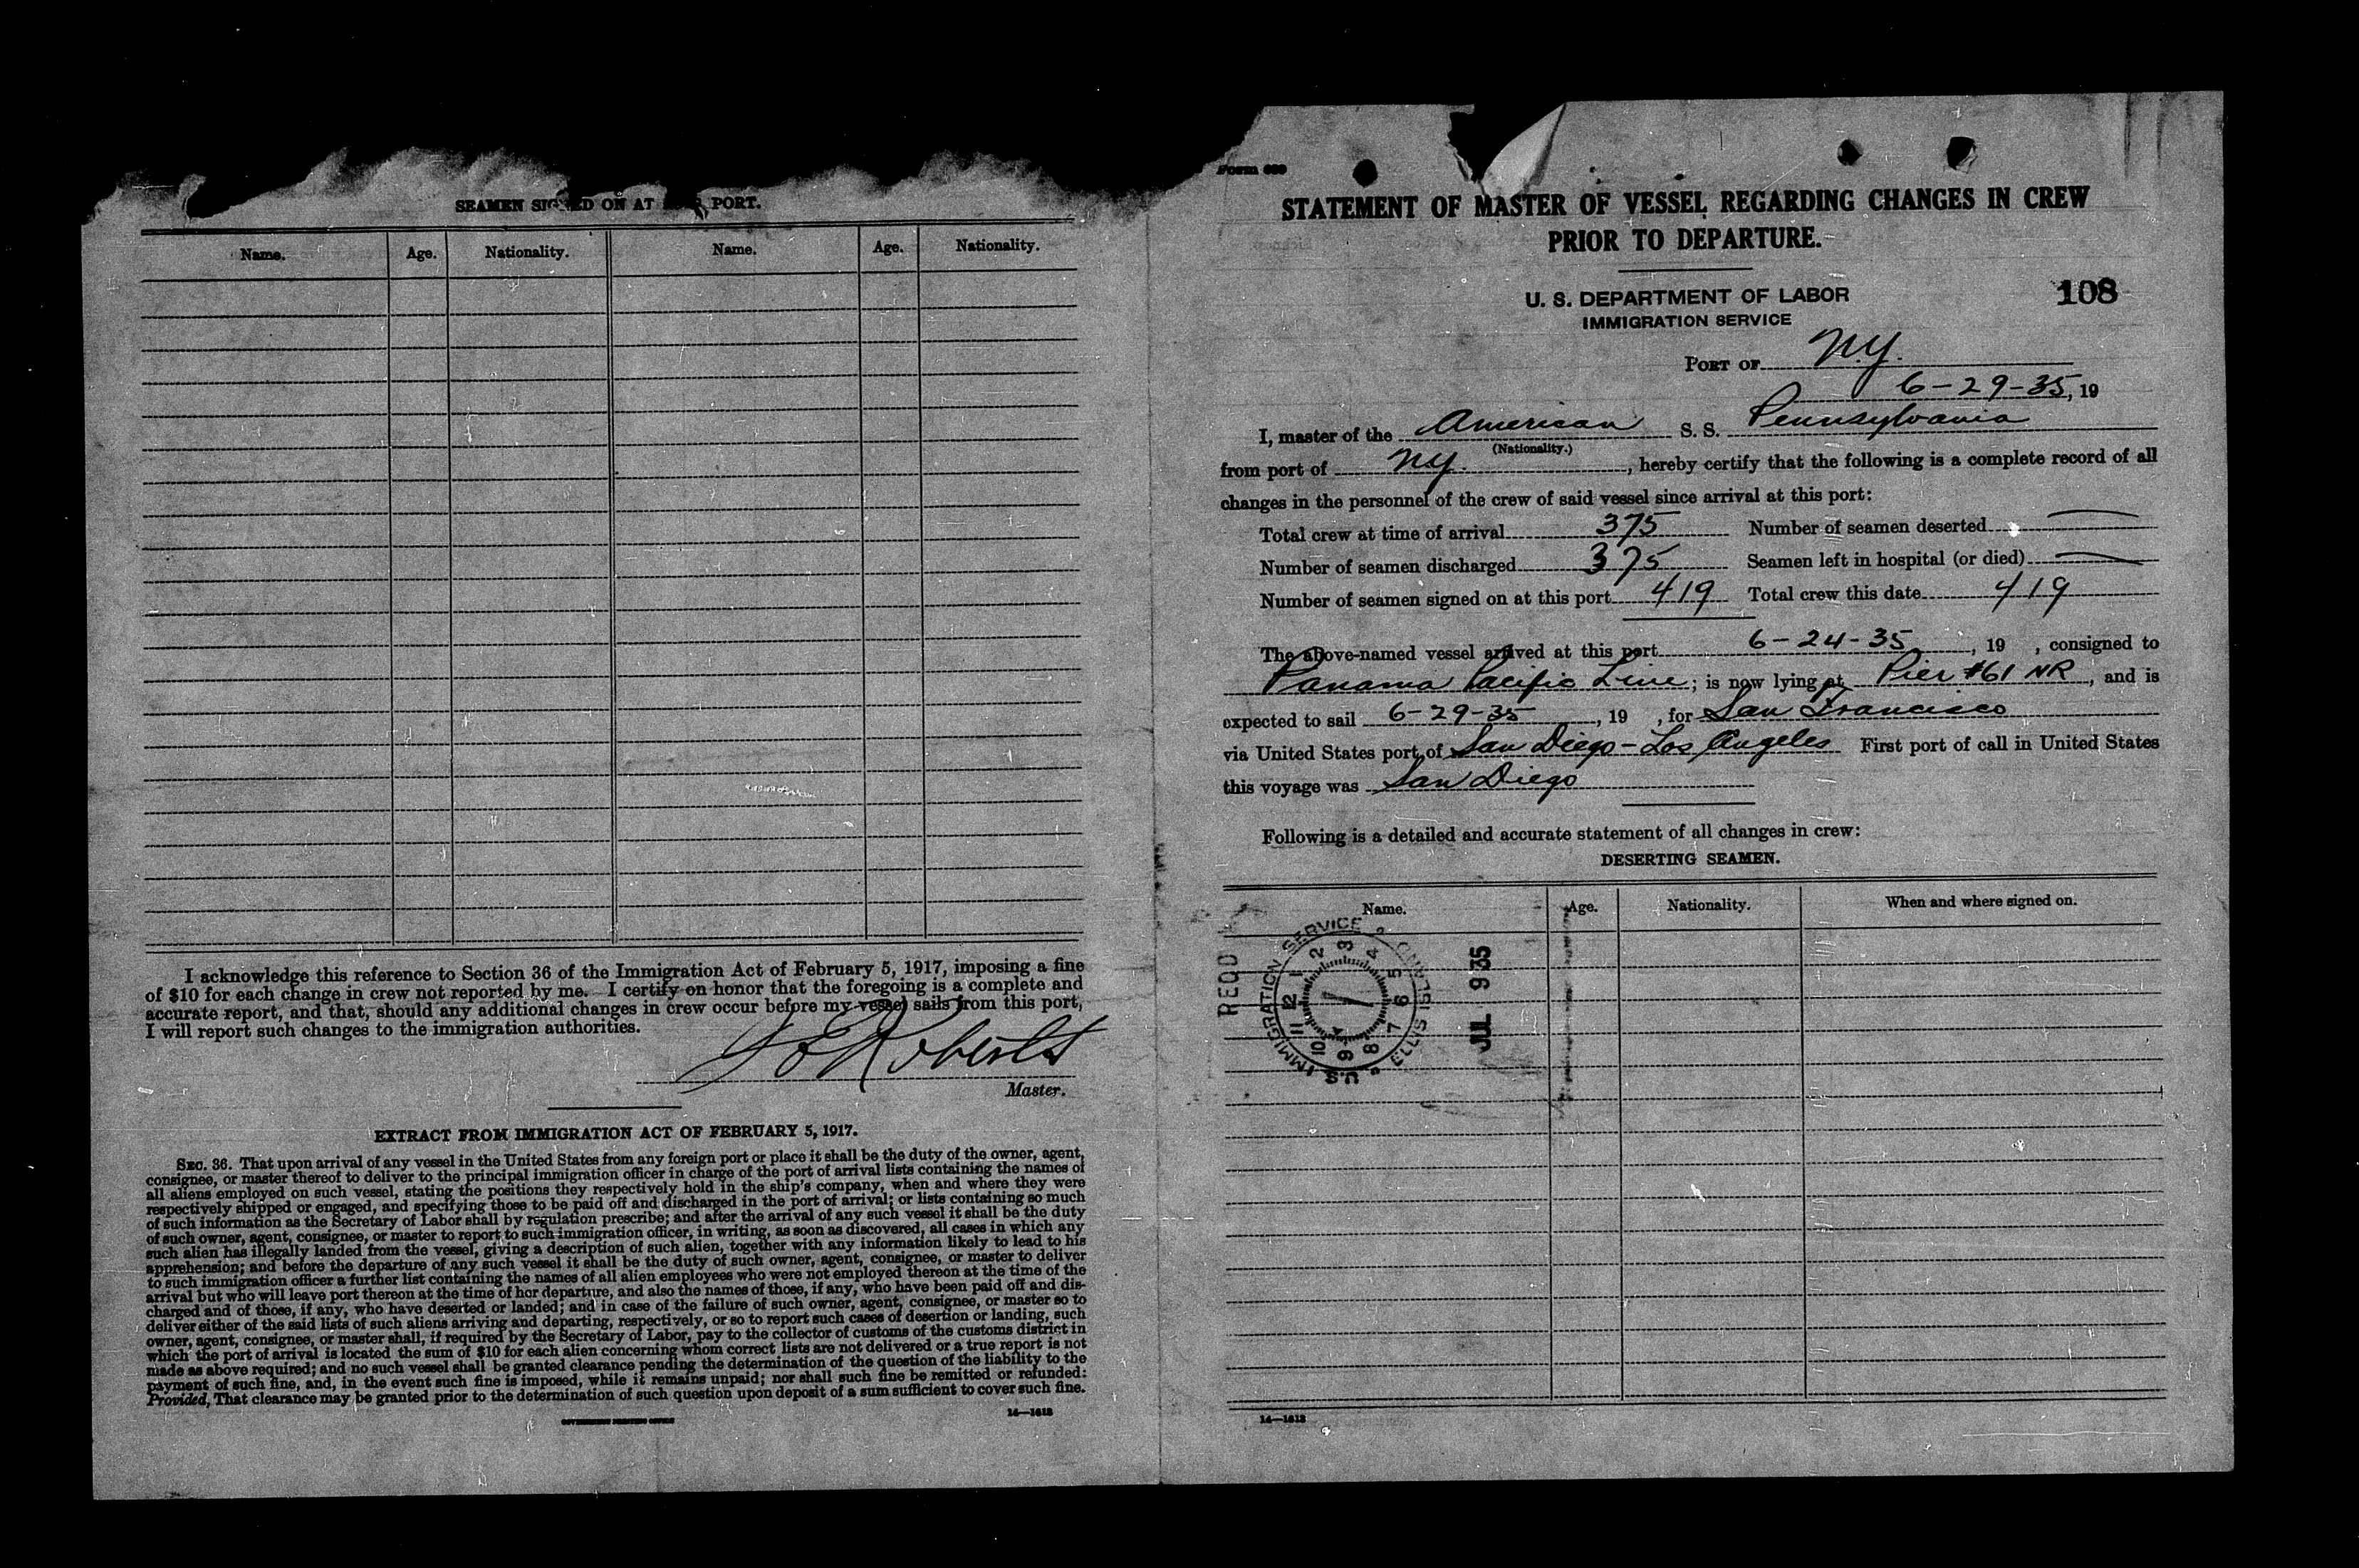 SEAMEN SIGNED ON AT PORT.
Name. Age. Nationality. Name. Age. Nationality.
I acknowledge this reference to Section 36 of the Immigration Act of February 5, 1917, imposing a fine
of $10 for each change in crew not reported by me. I certify on honor that the foregoing is a complete and
accurate report, and that, should any additional changes in crew occur before my vessel sails from this port,
I will report such changes to the immigration authorities.
Roberts
Master.
EXTRACT FROM IMMIGRATION ACT OF FEBRUARY 5, 1917.
SEC. 36. That upon arrival of any vessel in the United States from any foreign port or place it shall be the duty of the owner, agent,
consignee, or master thereof to deliver to the principal immigration officer in charge of the port of arrival lists containing the names of
all aliens employed on such vessel, stating the positions they respectively hold in the ship's company, when and where they were
respectively shipped or engaged, and specifying those to be paid off and discharged in the port of arrival; or lists containing so much
of such information as the Secretary of Labor shall by regulation prescribe; and after the arrival of any such vessel it shall be the duty
of such owner, agent, consignee, or master to report to such immigration officer, in writing, as soon as discovered, all cases in which any
such alien has illegally landed from the vessel, giving a description of such alien, together with any information likely to lead to his
apprehension; and before the departure of any such vessel it shall be the duty of such owner, agent, consignee, or master to deliver
to such immigration officer a further list containing the names of all alien employees who were not employed thereon at the time of the
arrival but who will leave port thereon at the time of her departure, and also the names of those, if any, who have been paid off and dis-
charged and of those, if any, who have deserted or landed; and in case of the failure of such owner, agent, consignee, or master so to
deliver either of the said lists of such aliens arriving and departing, respectively, or so to report such cases of desertion or landing, such
owner, agent, consignee, or master shall, if required by the Secretary of Labor, pay to the collector of customs of the customs district in
which the port of arrival is located the sum of $10 for each alien concerning whom correct lists are not delivered or a true report is not
made as above required; and no such vessel shall be granted clearance pending the determination of the question of the liability to the
payment of such fine, and, in the event such fine is imposed, while it remains unpaid; nor shall such fine be remitted or refunded:
Provided, That clearance may be granted prior to the determination of such question upon deposit of a sum sufficient to cover such fine.
GOVERNMENT PRINTING OFFICE 14—1613
Form 689
STATEMENT OF MASTER OF VESSEL REGARDING CHANGES IN CREW
PRIOR TO DEPARTURE.
U. S. DEPARTMENT OF LABOR
108
IMMIGRATION SERVICE
PORT OF N.Y.
6-29-35, 19
I, master of the American S. S. Pennsylvania
(Nationality.)
from port of N.Y., hereby certify that the following is a complete record of all
changes in the personnel of the crew of said vessel since arrival at this port:
Total crew at time of arrival 375 Number of seamen deserted —
Number of seamen discharged 375 Seamen left in hospital (or died) —
Number of seamen signed on at this port 419 Total crew this date 419
The above-named vessel arrived at this port 6-24-35, 19 , consigned to
Panama Pacific Line; is now lying at Pier #61 NR, and is
expected to sail 6-29-35, 19 , for San Francisco
via United States port of San Diego - Los Angeles First port of call in United States
this voyage was San Diego
Following is a detailed and accurate statement of all changes in crew:
DESERTING SEAMEN.
Name. Age. Nationality. When and where signed on.
RECD
U.S. IMMIGRATION SERVICE ELLIS ISLAND
12 1 2 3 4 5 6 7 8 9 10 11
JUL 9 35
14—1613